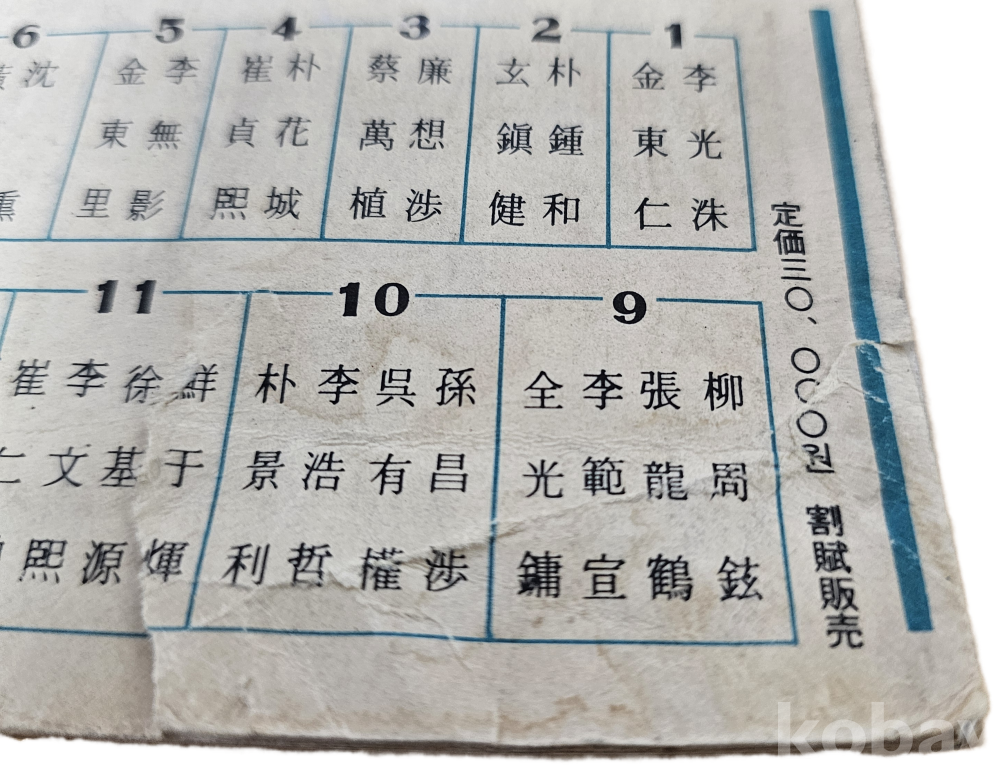 1
李光洙
金東仁
2
朴鍾和
玄鎭健
3
廉想涉
蔡萬植
4
朴花城
崔貞熙
5
李無影
金東里
6
沈熏
9
柳周鉉
張龍鶴
李範宣
全光鏞
10
孫昌涉
吳有權
李浩哲
朴景利
11
鮮于煇
徐基源
李文熙
崔仁
定価三〇、〇〇〇원 割賦販売
kobay